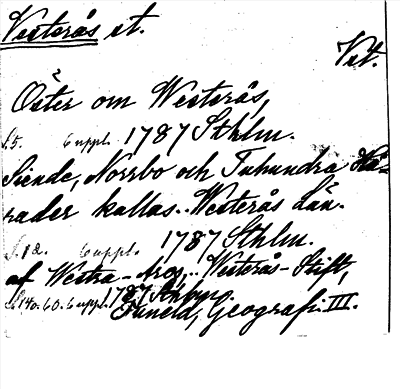 Westerås st.
Vst.
Öster om Westerås,
S. 5. 6 uppl. 1787 Sthlm.
Siende, Norrbo och Tuhundra Hä-
rader kallas.. Westerås län.
S. 12. 6 uppl. 1787 Sthlm.
af Westra-Aros,.. Westerås-Stift,
S. 140. 60. 6 uppl. 1787 Sthlm.
Tuneld, Geografi. III.